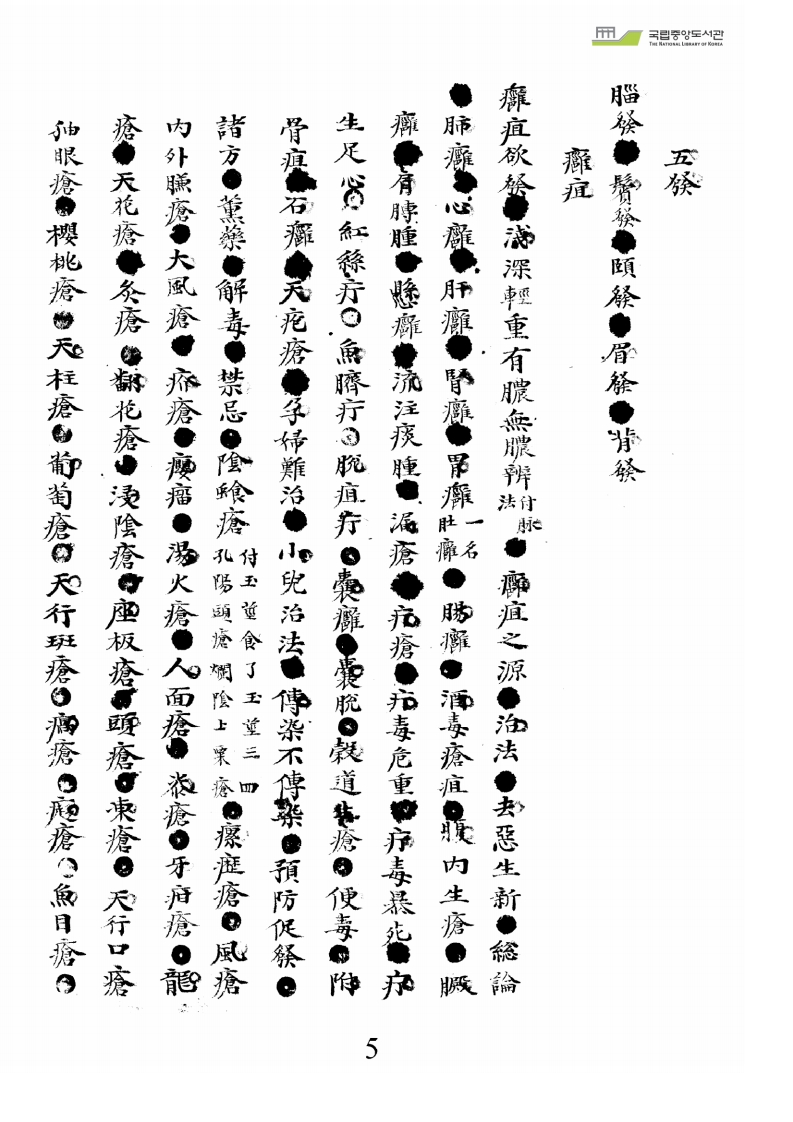 국립중앙도서관
THE NATIONAL LIBRARY OF KOREA
五發
腦發●鬢發●頤發●眉發●背發
癰疽
癰疽欲發●淺深輕重有膿無膿辨法付脉●癰疽之源●治法●去惡生新●総論
●肺癰●心癰●肝癰●腎癰●胃癰一名肚癰●腸癰●酒毒瘡疽●腹內生瘡●臁
癰●肩膊腫●懸癰●流注痰腫●漏瘡●疔瘡●疔毒危重●疔毒暴死●疔
生足心○紅絲疔○魚臍疔○脫疽疔●囊癰●囊脫●穀道生瘡●便毒●附
骨疽●石癰●天疱瘡●孕婦難治●小兒治法●傳染不傳染●預防促發●
諸方●薰藥●解毒●禁忌●陰蝕瘡付玉莖食了玉莖三四孔陽頭瘡爛陰上粟瘡●瘰癧瘡●風瘡
內外臁瘡●大風瘡●疥瘡●癭瘤●湯火瘡●人面瘡●㭍瘡●牙疳瘡●龍
瘡●天花瘡●灸瘡●翻花瘡●浸陰瘡●座板瘡●頭瘡●凍瘡●天行口瘡
眼瘡●櫻桃瘡●天柱瘡●葡萄瘡○天行斑瘡●瘑瘡●瘡○魚目瘡○
5